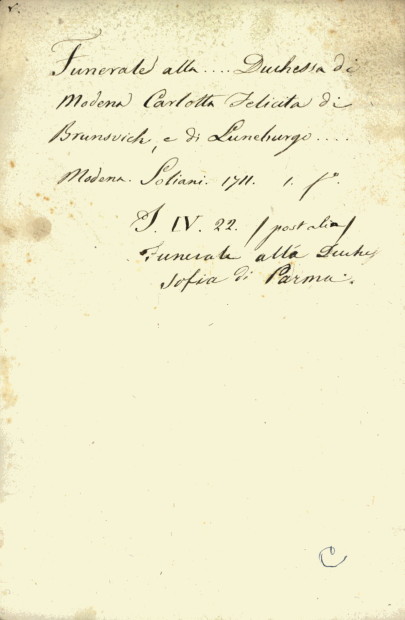 v.
Funerale alla .... Duchessa di
Modena Carlotta Felicita di
Brunsvich, e di Luneburgo ....
Modena. Soliani. 1711. 1. fº.
J. IV. 22. / post alia /
Funerale alla Duche
Sofia di Parma.
C